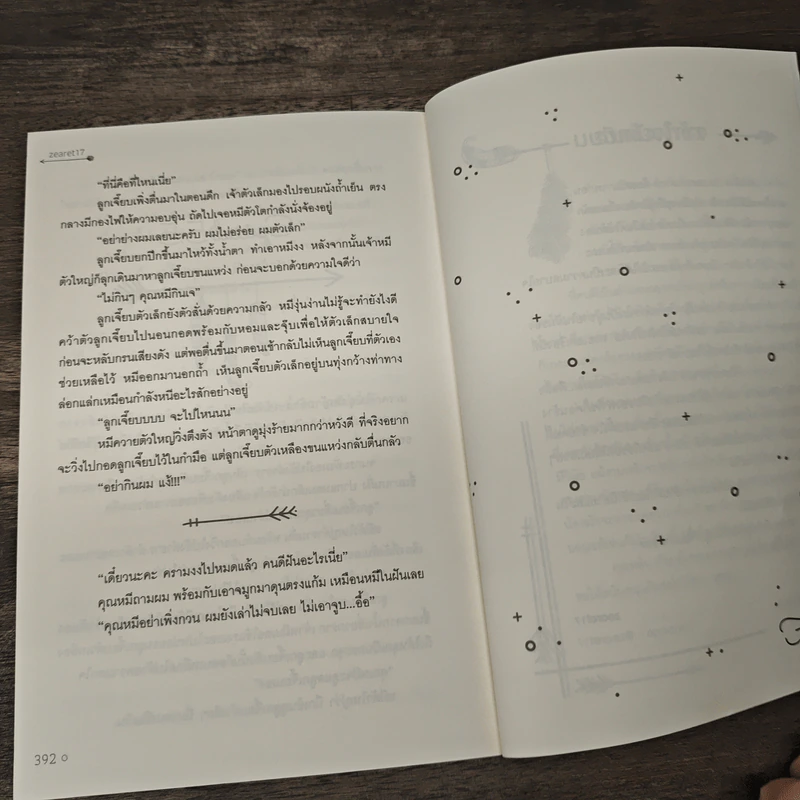 zearet17
“ที่นี่คือที่ไหนเนี่ย”
ลูกเจี๊ยบเพิ่งตื่นมาในตอนดึก เจ้าตัวเล็กมองไปรอบผนังถ้ำเย็น ตรง
กลางมีกองไฟให้ความอบอุ่น ถัดไปเจอหมีตัวโตกำลังนั่งจ้องอยู่
“อย่าย่างผมเลยนะครับ ผมไม่อร่อย ผมตัวเล็ก”
ลูกเจี๊ยบยกปีกขึ้นมาไหว้ทั้งน้ำตา ทำเอาหมีงง หลังจากนั้นเจ้าหมี
ตัวใหญ่ก็ลุกเดินมาหาลูกเจี๊ยบขนแหว่ง ก่อนจะบอกด้วยความใจดีว่า
“ไม่กินๆ คุณหมีกินเจ”
ลูกเจี๊ยบตัวเล็กยังตัวสั่นด้วยความกลัว หมีงุ่นง่านไม่รู้จะทำยังไงดี
คว้าตัวลูกเจี๊ยบไปนอนกอดพร้อมกับหอมและจุ๊บเพื่อให้ตัวเล็กสบายใจ
ก่อนจะหลับกรนเสียงดัง แต่พอตื่นขึ้นมาตอนเช้ากลับไม่เห็นลูกเจี๊ยบที่ตัวเอง
ช่วยเหลือไว้ หมีออกมานอกถ้ำ เห็นลูกเจี๊ยบตัวเล็กอยู่บนทุ่งกว้างท่าทาง
ล่อกแล่กเหมือนกำลังหนีอะไรสักอย่างอยู่
“ลูกเจี๊ยบบบบ จะไปไหนนน”
หมีควายตัวใหญ่วิ่งตึงตัง หน้าตาดูมุ่งร้ายมากกว่าหวังดี ที่จริงอยาก
จะวิ่งไปกอดลูกเจี๊ยบไว้ในกำมือ แต่ลูกเจี๊ยบตัวเหลืองขนแหว่งกลับตื่นกลัว
“อย่ากินผม แง้!!!”
“เดี๋ยวนะคะ ครามงงไปหมดแล้ว คนดีฝันอะไรเนี่ย”
คุณหมีถามผม พร้อมกับเอาจมูกมาดุนตรงแก้ม เหมือนหมีในฝันเลย
“คุณหมีอย่าเพิ่งกวน ผมยังเล่าไม่จบเลย ไม่เอาจุบ...อื้อ”
392